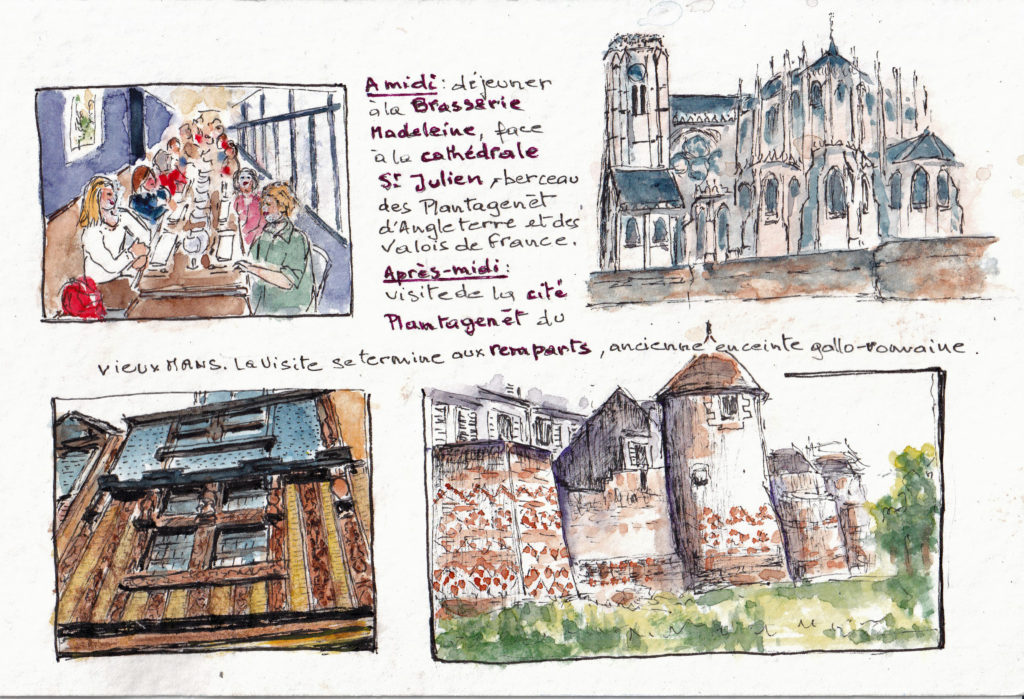 A midi : déjeuner
à la Brasserie
Madeleine, face
à la cathédrale
St Julien, berceau
des Plantagenêt
d'Angleterre et des
Valois de France.
Après-midi :
visite de la cité
Plantagenêt du
vieux MANS. La visite se termine aux remparts, ancienne enceinte gallo-romaine.